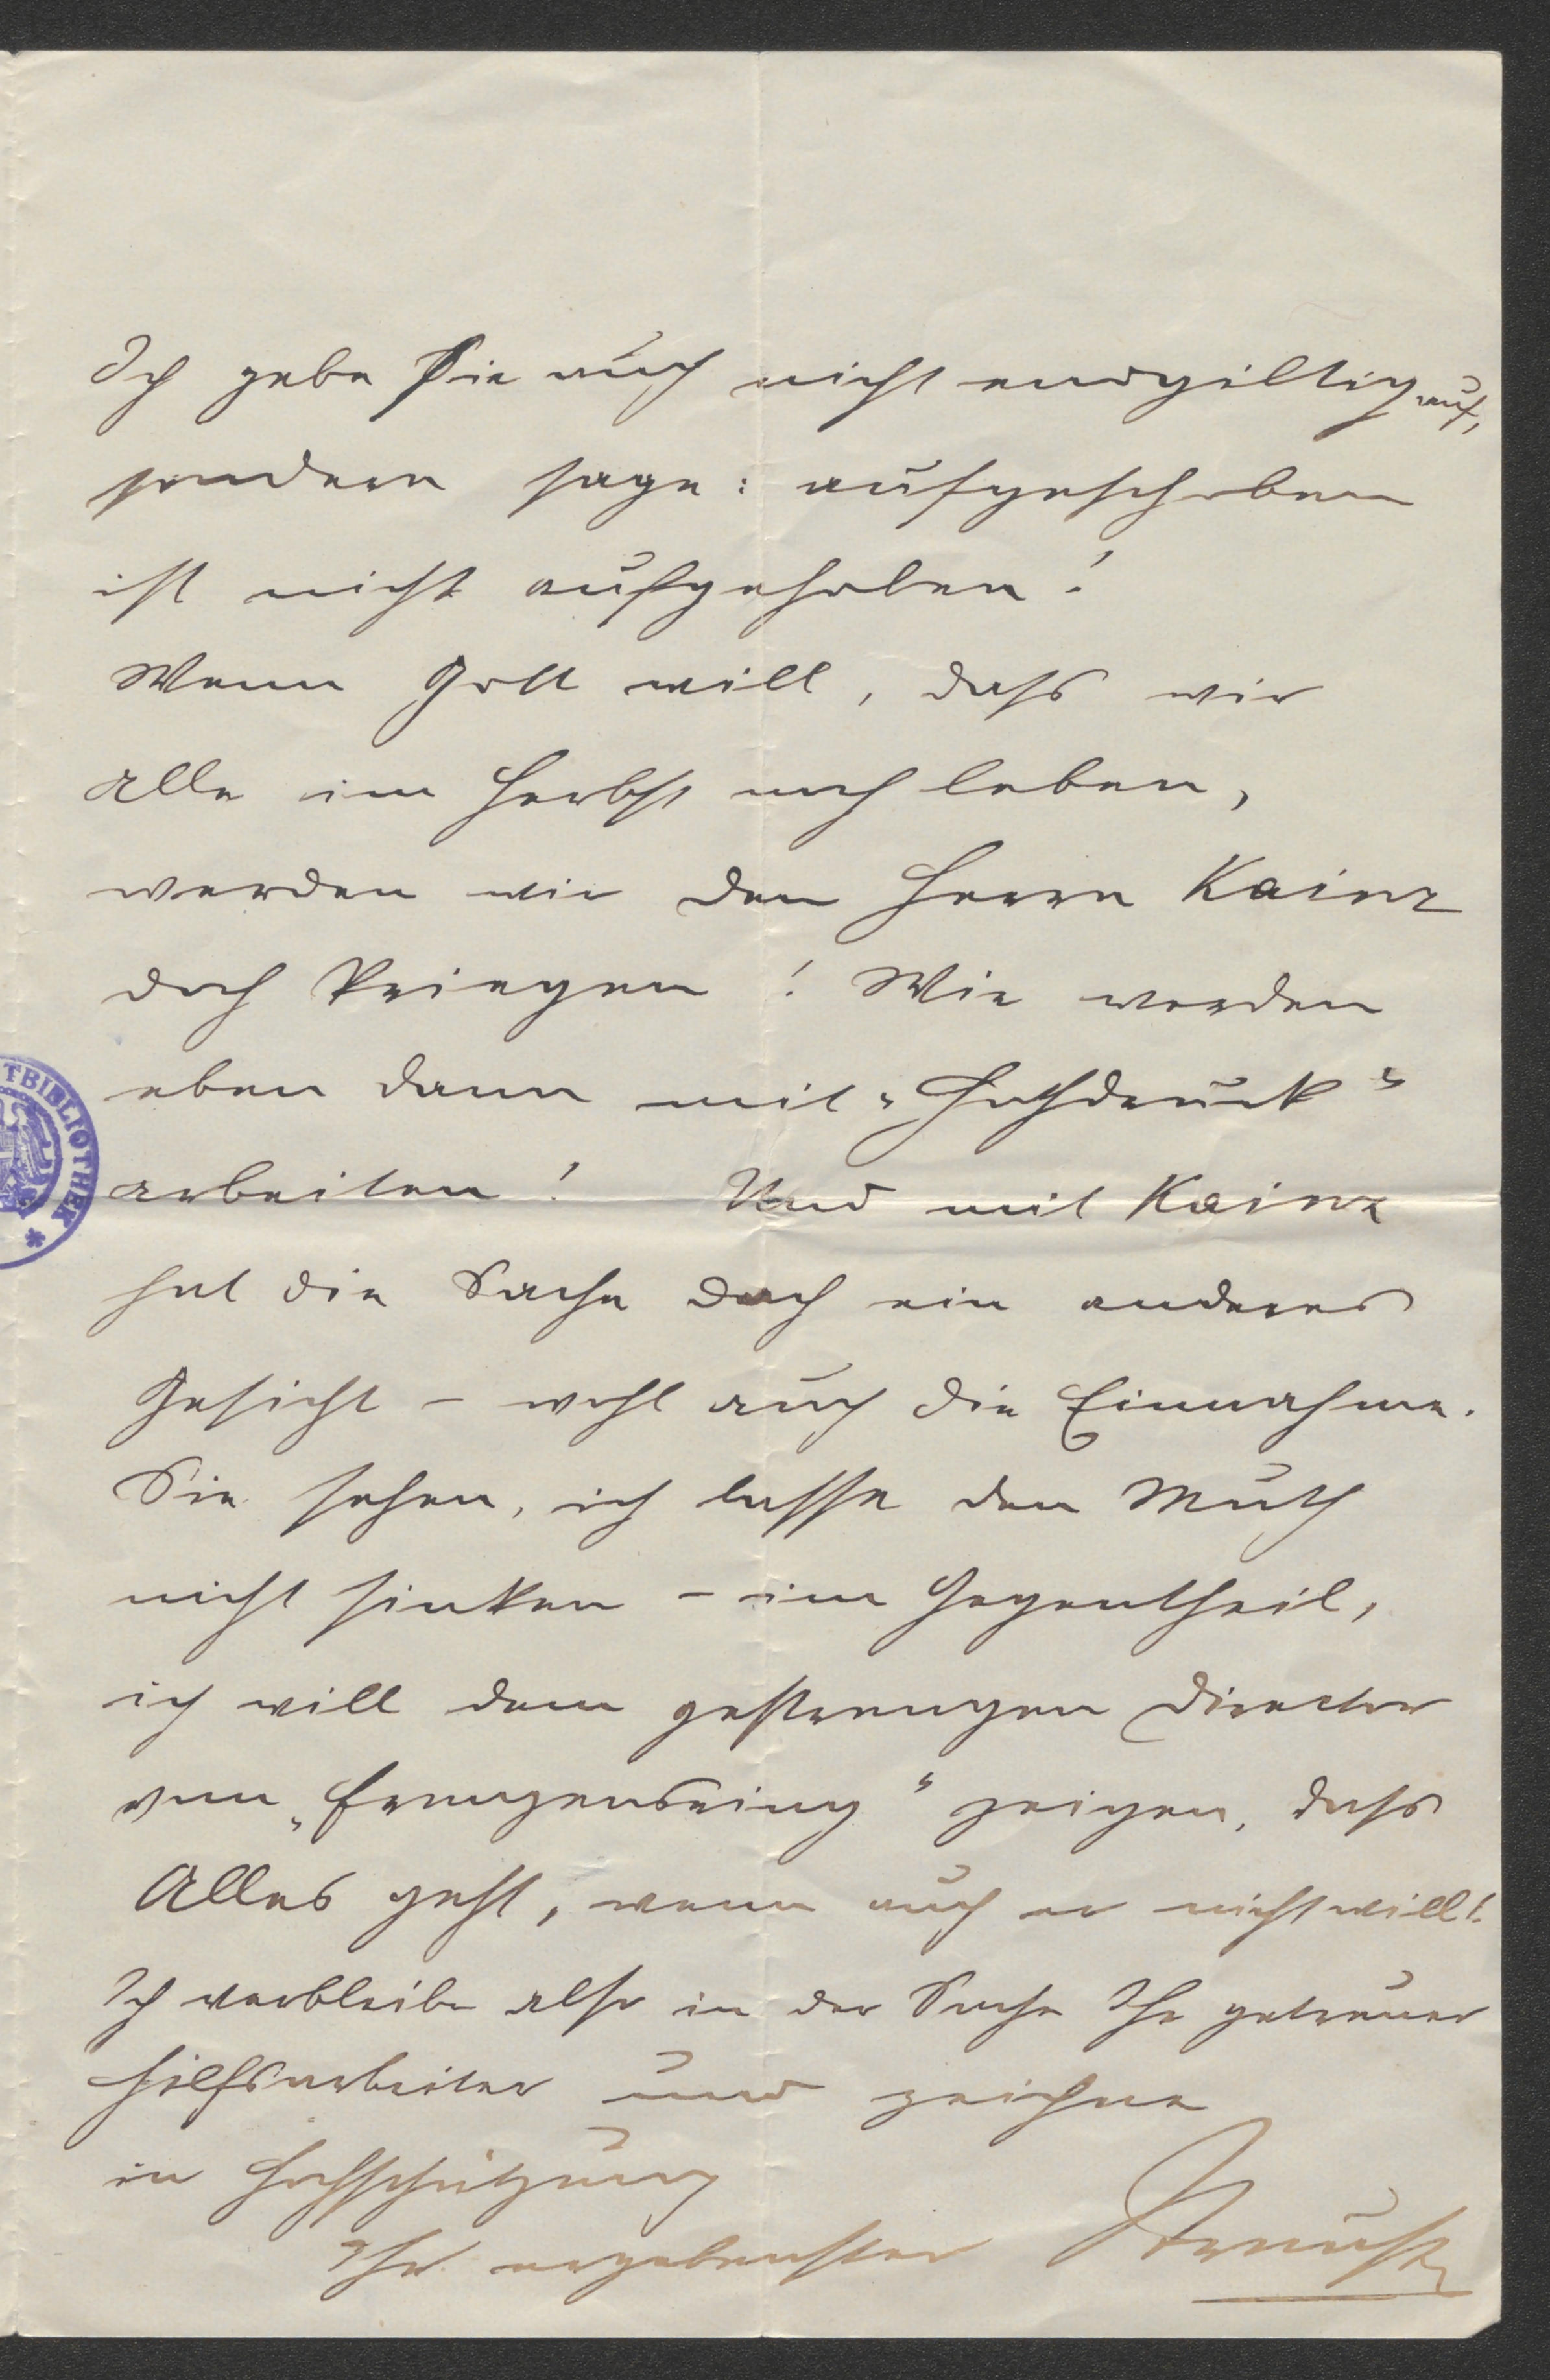 Ich gebe sie auch nicht endgiltig auf,
sondern sage: aufgeschoben
ist nicht aufgehoben!
Wenn Gott will, dass wir
alle im Herbst noch leben,
werden wir den Herrn Kainz
doch kriegen! Wir werden
eben dann mit „Hochdruck“
arbeiten! Und mit Kainz
hat die Sache doch ein anderes
Gesicht – wohl auch die Einnahme.
Sie sehen, ich lasse den Muth
nicht sinken – im Gegentheil,
ich will dem gestrengen Director
vom „Franzensring“ zeigen, dass
Alles geht, wenn auch er nicht will!
Ich verbleibe also in der Sache Ihr getreuer
Hilfsarbeiter und zeichne
in Hochschätzung
Ihr ergebenster
TBIBLIOTHEK